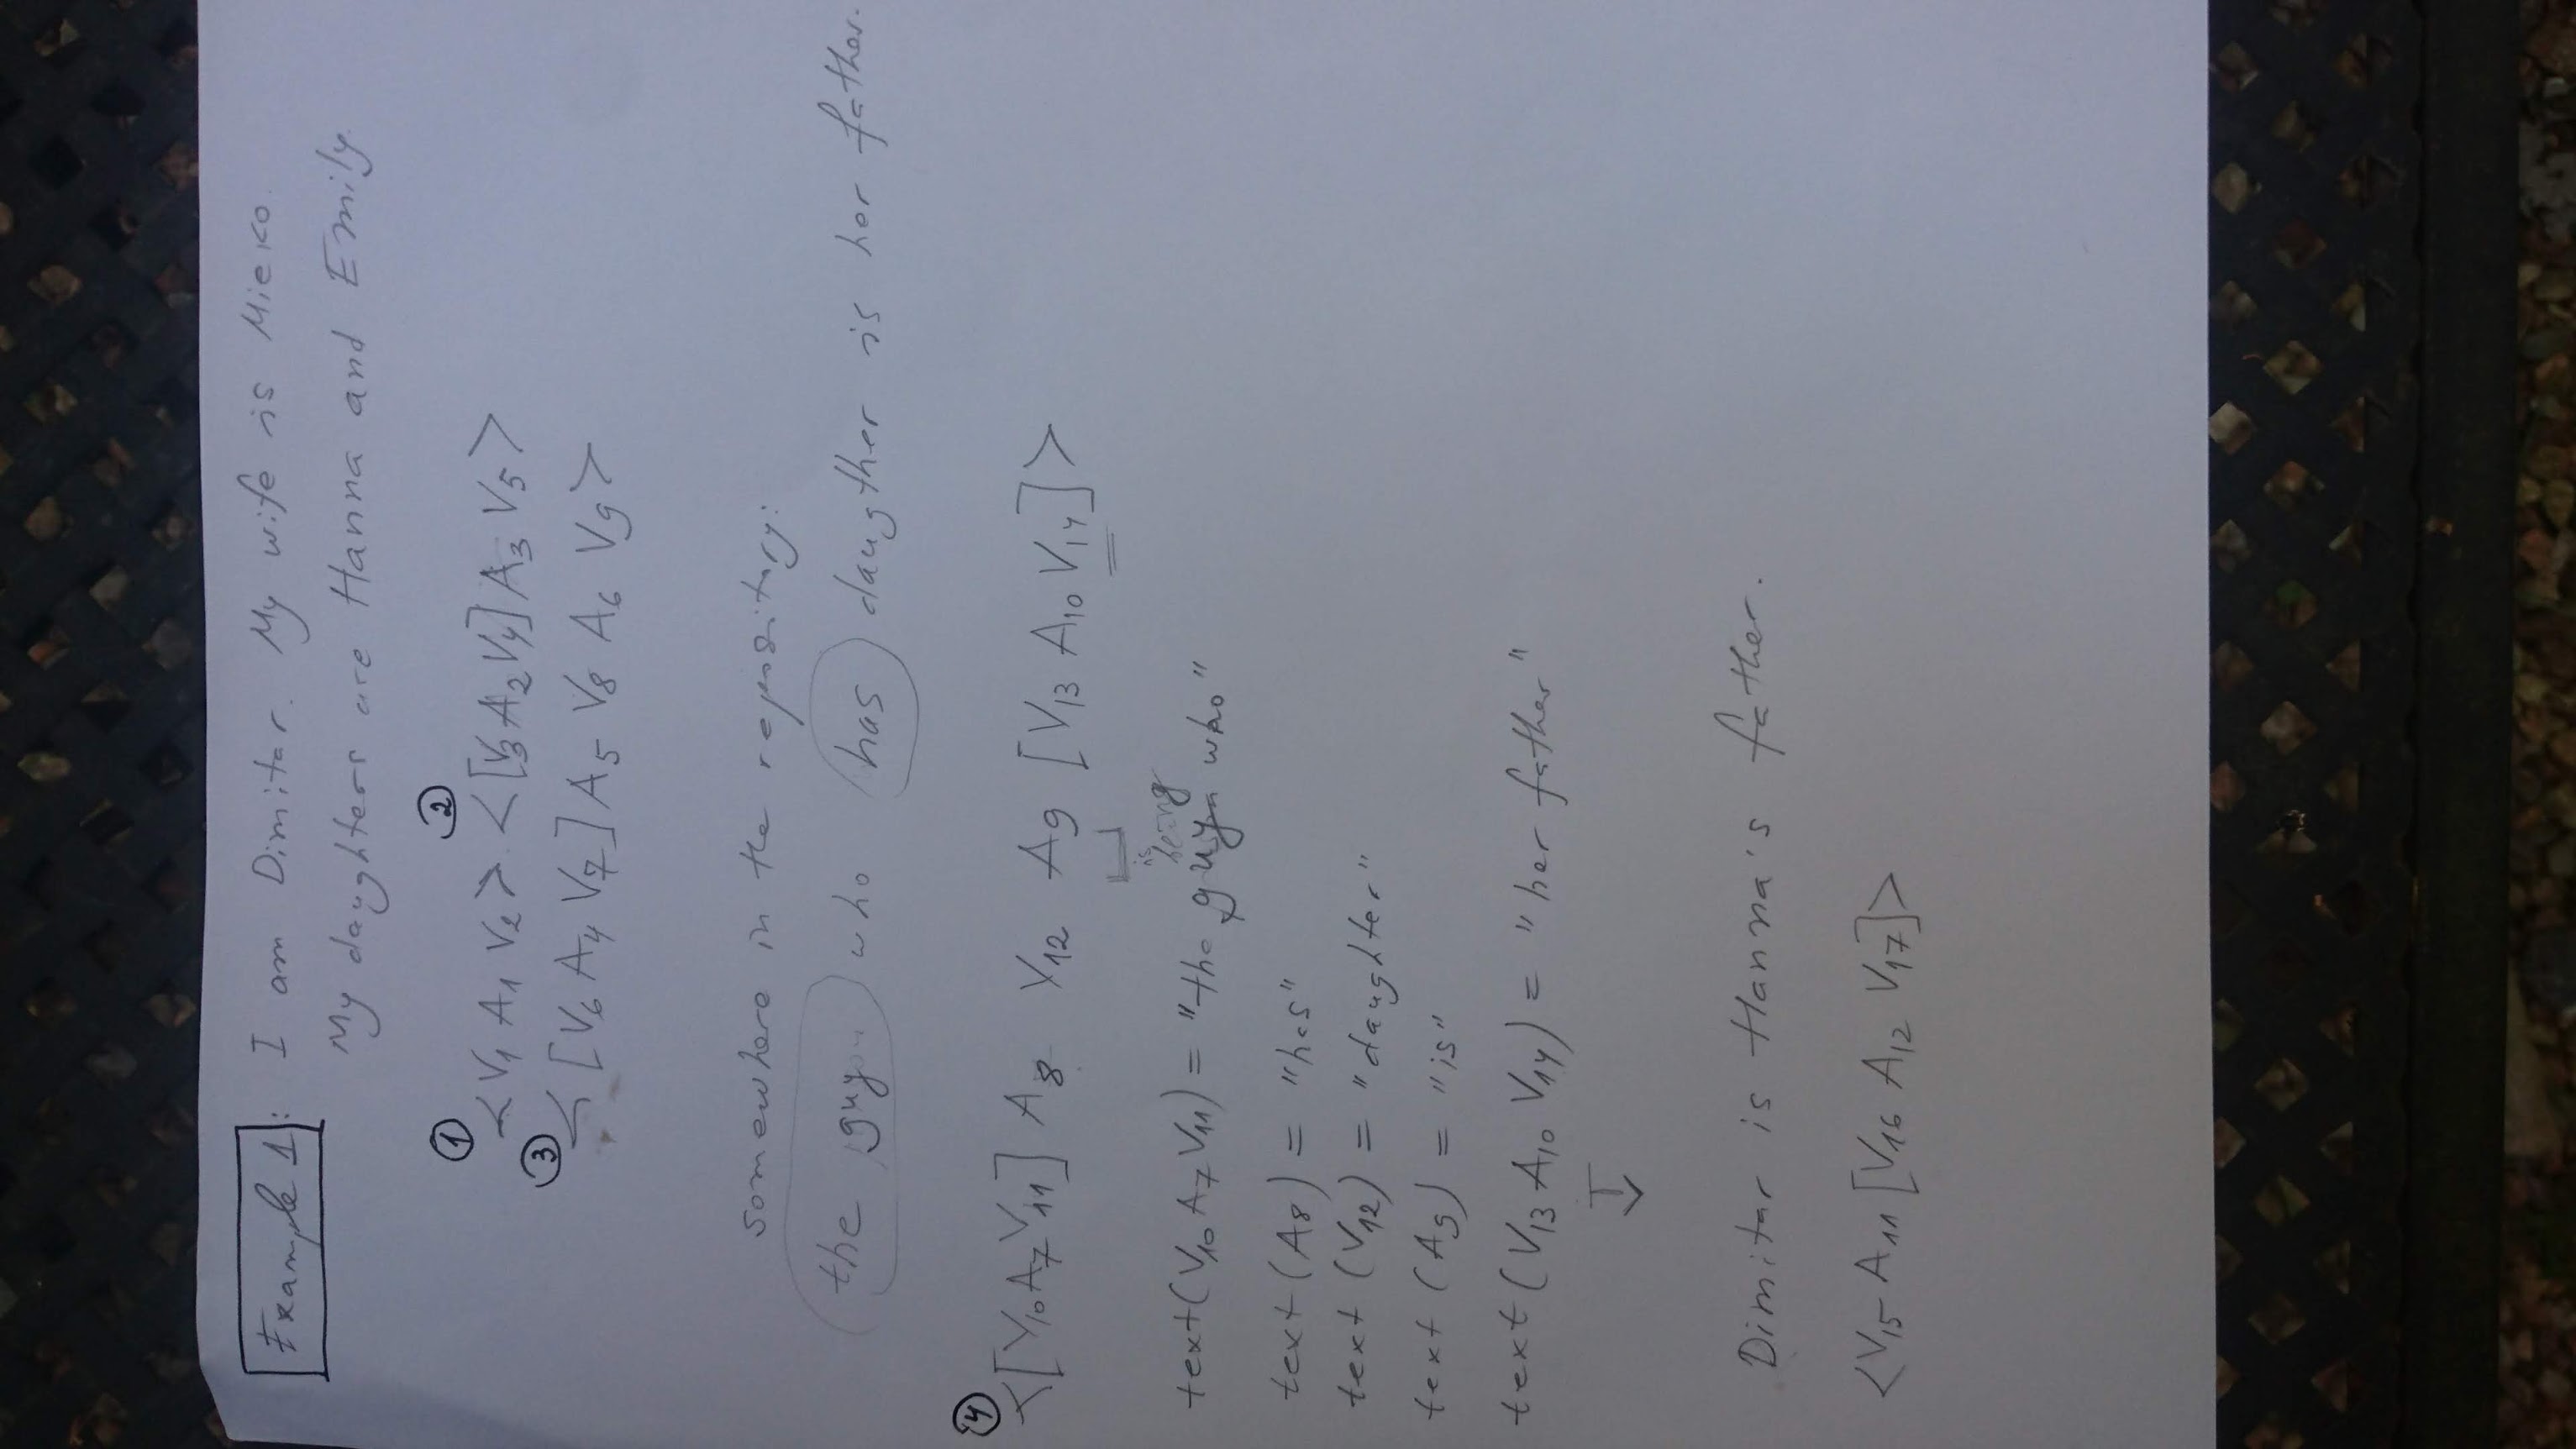 Example 1: I am Dimitar. My wife is Mieko.
My daughters are Hanna and Emily.
① ②
<V₁ A₁ V₂> <[V₃ A₂ V₄] A₃ V₅>
③ <[V₆ A₄ V₇] A₅ V₈ A₆ V₉>
somewhere in the repository:
the guy who has daugther is her father.
④ <[V₁₀ A₇ V₁₁] A₈ V₁₂ A₉ [V₁₃ A₁₀ V₁₄]>
is being
text(V₁₀ A₇ V₁₁) = "the guy who"
text(A₈) = "has"
text(V₁₂) = "daughter"
text(A₉) = "is"
text(V₁₃ A₁₀ V₁₄) = "her father"
Dimitar is Hanna's father.
<V₁₅ A₁₁ [V₁₆ A₁₂ V₁₇]>